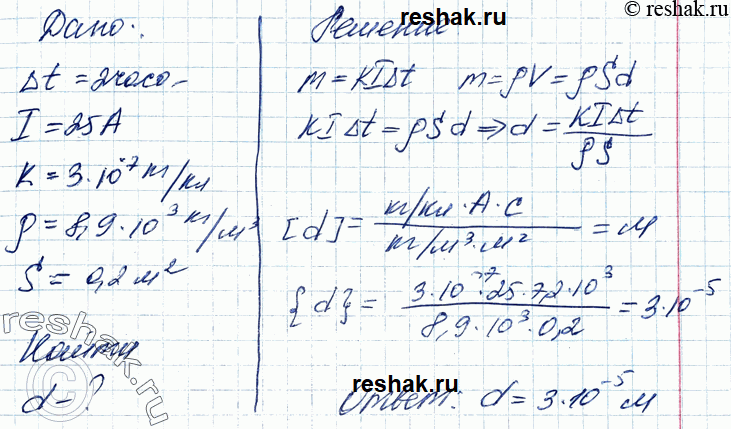 reshak.ru
© reshak.ru
Дано:
Δt = 2 часа
I = 25 А
K = 3·10⁻⁷ кг/кл
ρ = 8,9·10³ кг/м³
S = 0,2 м²
Найти
d - ?
Решение
m = KIΔt m = ρV = ρSd
KIΔt = ρSd ⇒ d = KIΔt / ρS
[d] = кг/кл·А·с / кг/м³·м² = м
{d} = 3·10⁻⁷·25·7,2·10³ / 8,9·10³·0,2 = 3·10⁻⁵
reshak.ru
Ответ: d = 3·10⁻⁵ м
reshak.ru